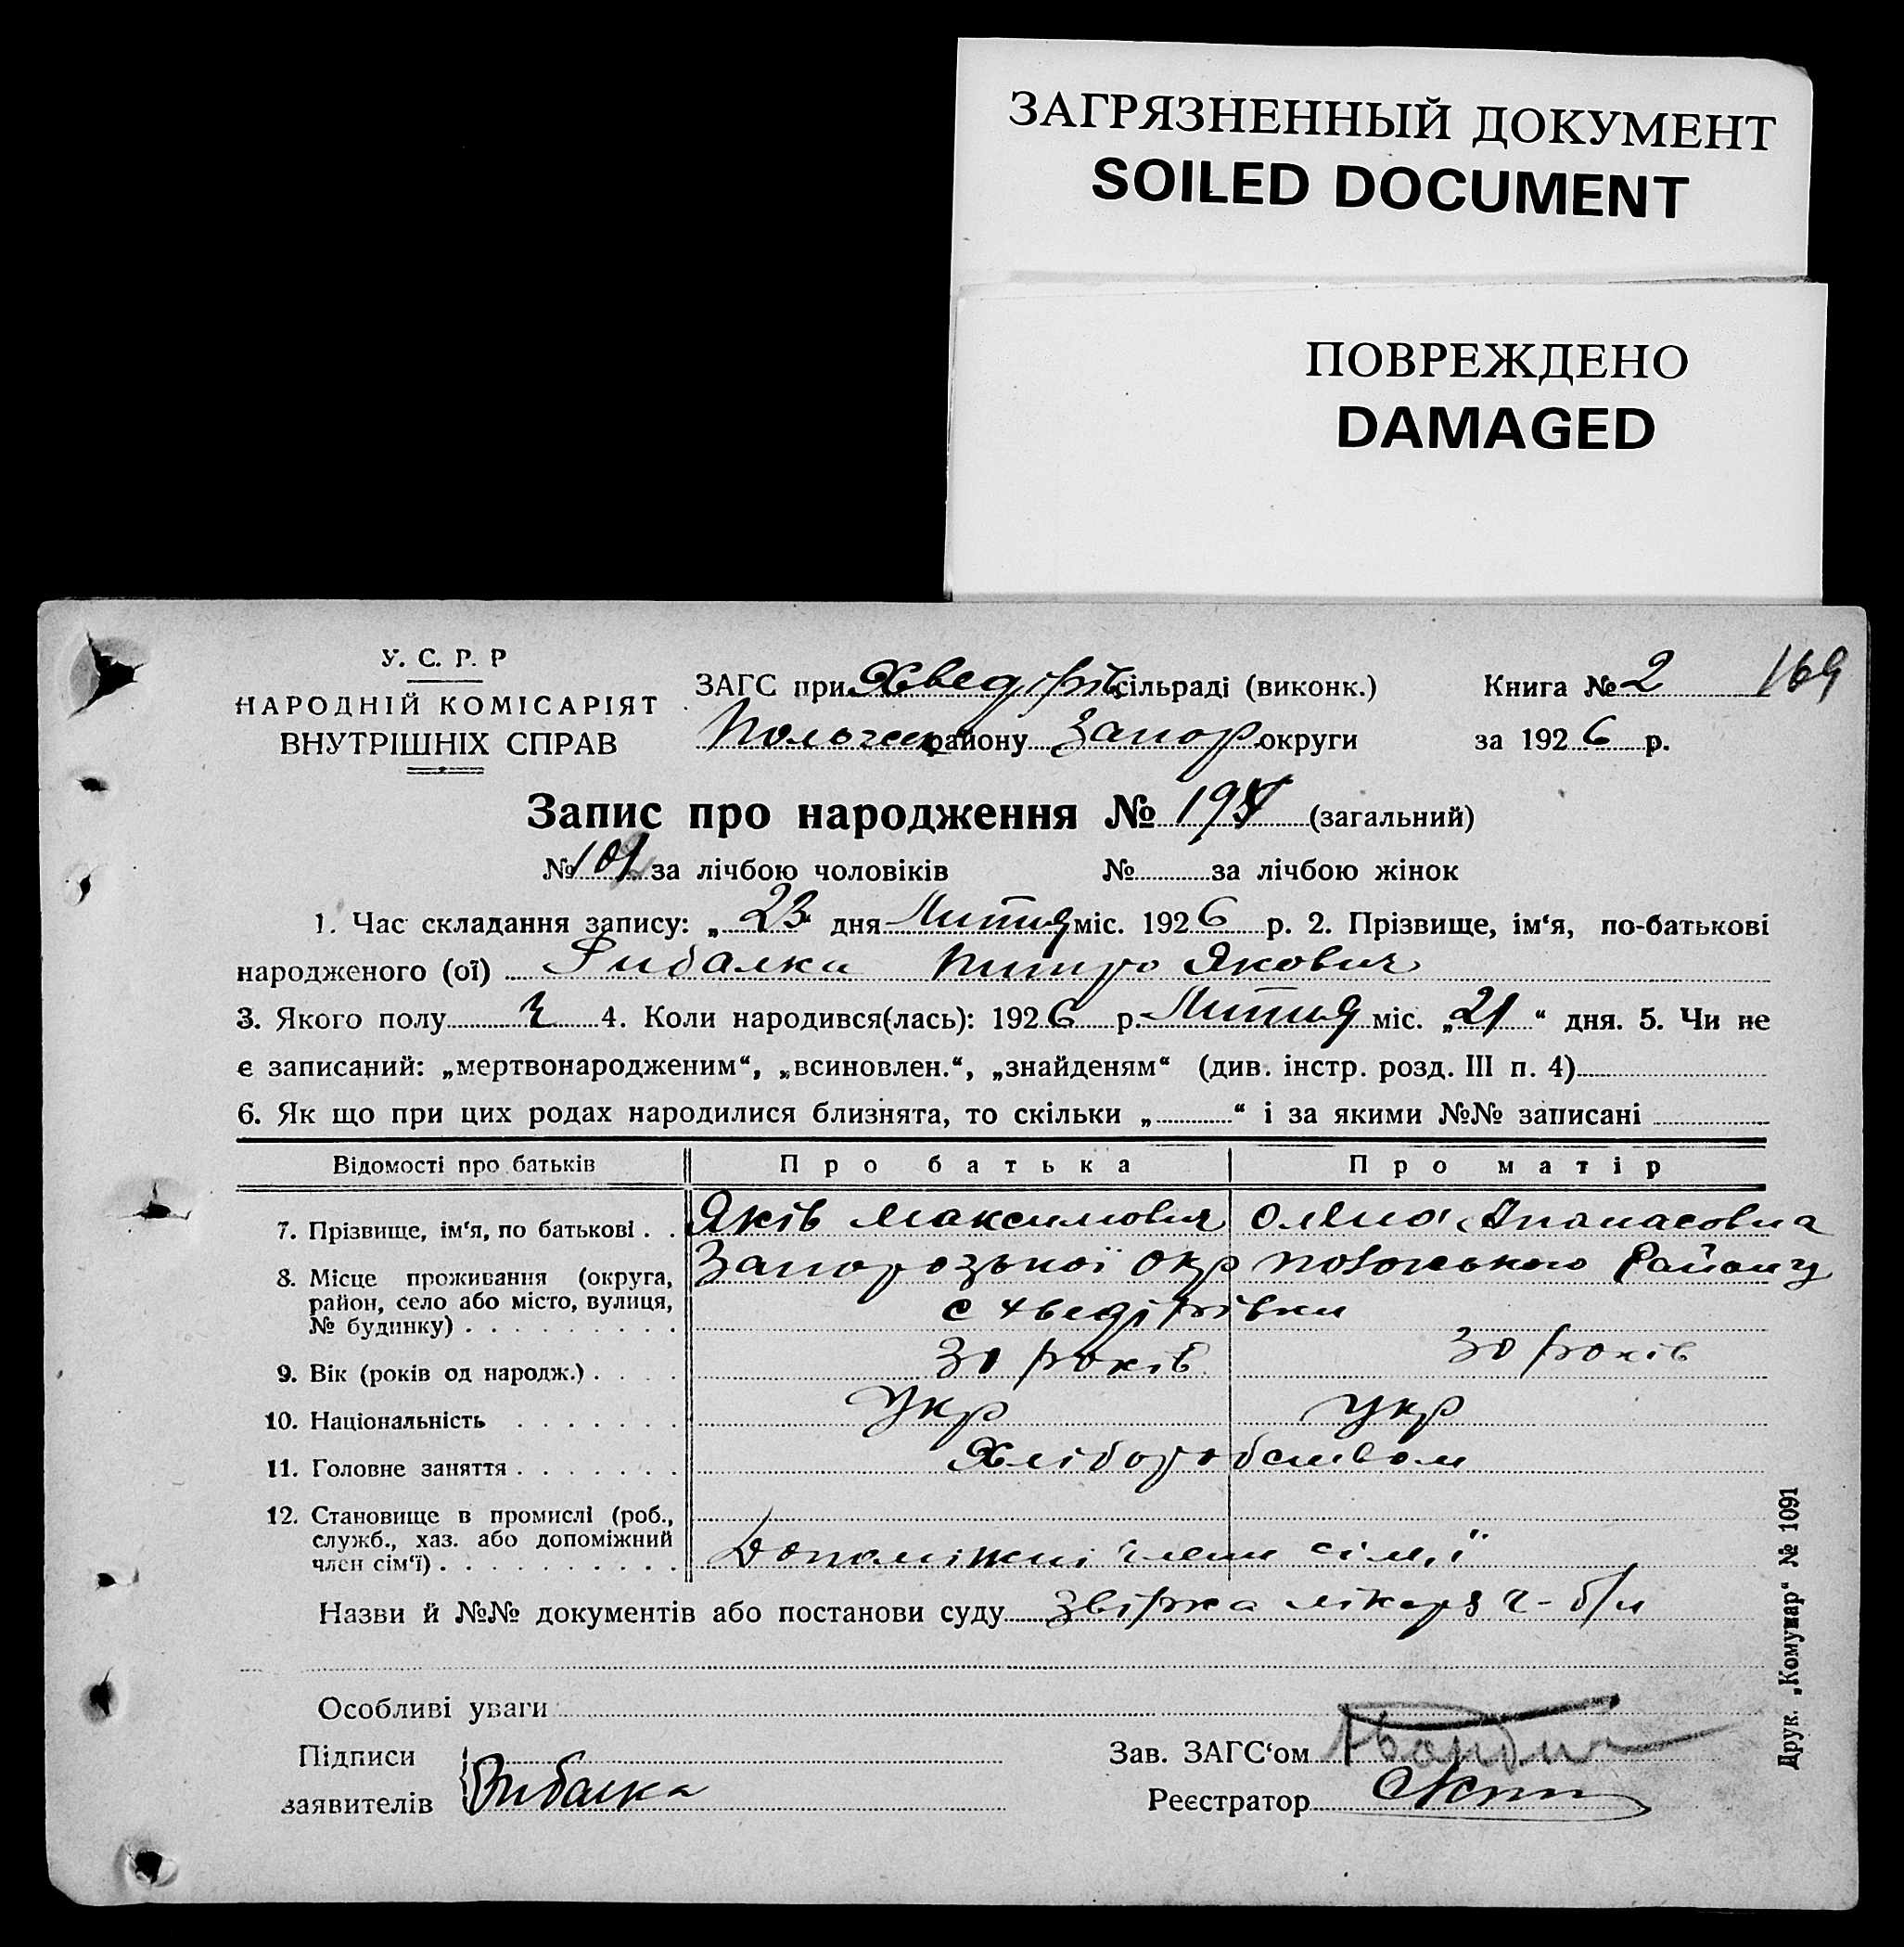 ЗАГРЯЗНЕННЫЙ ДОКУМЕНТ
SOILED DOCUMENT
ПОВРЕЖДЕНО
DAMAGED
У. С. Р. Р
НАРОДНІЙ КОМІСАРІЯТ
ВНУТРІШНІХ СПРАВ
ЗАГС при Хведорів сільраді (виконк.)
району Запор округи
Книга № 2 169
за 1926 р.
Запис про народження № (загальний)
№ за лічбою чоловіків № за лічбою жінок
1. Час складання запису: „ 23 дня Липня міс. 1926 р. 2. Прізвище, ім‘я, по-батькові
народженого (ої) Рибалка Якович
3. Якого полу ч 4. Коли народився(лась): 1926 р. Липня міс. „ 21 “ дня. 5. Чи не
є записаний: „мертвонародженим“, „всиновлен.“, „знайденям“ (див. інстр. розд. III п. 4)
6. Як що при цих родах народилися близнята, то скільки „ “ і за якими №№ записані
Відомості про батьків Про батька Про матір
7. Прізвище, ім‘я, по батькові . . Яків Максимович Опанасовна
8. Місце проживання (округа, район, село або місто, вулиця, № будинку) . Запорозької окр Району
с Хведірівки
9. Вік (років од народж.) . 30 років 30 років
10. Національність Укр Укр
11. Головне заняття . Хліборобством
12. Становище в промислі (роб., служб., хаз. або допоміжний член сім‘ї) . Допоміжні члени сімї
Назви й №№ документів або постанови суду лікаря ч - б/н
Особливі уваги
Підписи
заявителів Рибалка
Зав. ЗАГС‘ом
Реєстратор
Друк. „Комунар“ № 1091